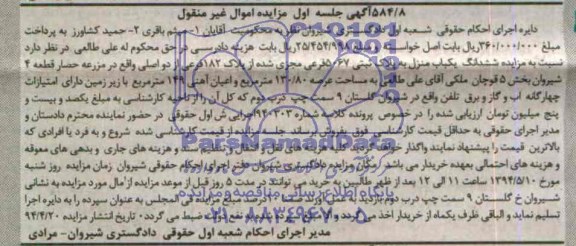 ۵۸۴/۸آگهی جلسه اول مزایده اموال غیر منقول
دایره اجرای احکام حقوقی شعبه اول دادگستری شیروان نظر به محکومیت آقایان ۱-میثم باقری ۲-حمید کشاورز به پرداخت
مبلغ ۳۶۰/۰۰۰/۰۰۰ریال بابت اصل خواسته و مبلغ ریال بابت هزینه دادرسی در حق محکوم له علی طالعی در نظر دارد
نسبت به مزایده ششدانگ یکباب منزل به پلاک ثبتی ۵۰۶۷فرعی مجزی شده از پلاک ۱۸۲فرعی از دو اصلی واقع در مزرعه حصار قطعه ۴
شیروان بخش ۵ قوچان ملکی آقای علی طالعی به مساحت عرصه ۱۳۰/۸۰ مترمربع و اعیان آهنی ۱۴۹ مترمربع با زیر زمین دارای امتیازات
چهارگانه آب و گاز و برق تلفن واقع در شیروان گلستان ۹ سمت چپ درب دوم که کل آن را از ناحیه کارشناسی به مبلغ یکصد و بیست و
پنج میلیون تومان ارزیابی شده را در خصوص پرونده کلاسه شماره ۹۴۰۳۰۳اجرایی ش اول حقوقی در حضور نماینده محترم دادستان و
مدیر اجرای حقوقی به حداقل قیمت کارشناسی فوق بفروش برساند جلسه مزایده از قیمت کارشناسی شده شروع و به فرد یا افرادی که
بالاترین قیمت را پیشنهاد نمایند واگذار خواهد و هزینه های جاری و بدهی های معوقه
و هزینه های احتمالی بعهده خریدار می باشد مکان مزایده دادگستری شیروان دفتر اجرای احکام حقوقی شیروان زمان مزایده روز شنبه
مورخ ۱۳۹۴/۵/۱۰ ساعت ۱۱ الی ۱۲ بعد از ظهر طالبین به خرید می توانند در مدت ۵ روز قبل از موعد مزایده از مال مورد مزایده به نشانی
شیروان خ گلستان ۹ سمت چپ درب دوم بازدید فی المجلس به عنوان سپرده را به دایره اجرا
تسلیم نماید و الباقی ظرف یکماه از خریدار اخذ می گردد ضبط می گردد- تاریخ انتشار مزایده ۹۴/۴/۲۰
مدیر اجرای احکام شعبه اول حقوقی دادگستری شیروان- مرادی